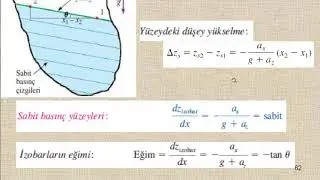 2
θ
1
x₁ − x₂
g
Sabit
basınç
çizgileri
Yüzeydeki düşey yükselme:
Δzₛ = zₛ₂ − zₛ₁ = − aₓ / (g + a_z) (x₂ − x₁)
Sabit basınç yüzeyleri: dz_izobar / dx = − aₓ / (g + a_z) = sabit
İzobarların eğimi: Eğim = dz_izobar / dx = − aₓ / (g + a_z) = −tan θ
62